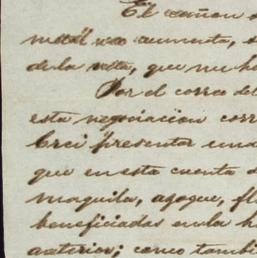 El cañon
metal no aumenta,
de la veta, que no ha
Por el correo del
esta negociacion
Crei presentar una
que en esta cuenta
maquila, azogue, fl
beneficiadas en la h
anterior; como tambi